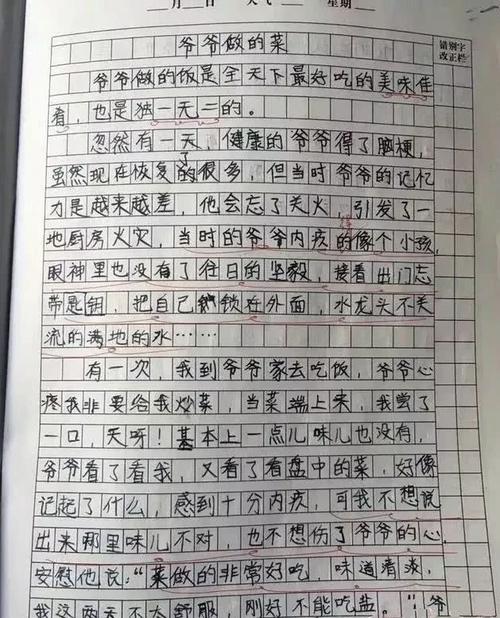 月 日 天气 星期
错别字
改正栏
爷爷做的菜
爷爷做的饭是全天下最好吃的美味佳
肴,也是独一无二的。
忽然有一天,健康的爷爷得了脑梗,
虽然现在恢复了的很多,但当时爷爷的记忆
力是越来越差,他会忘了关火,引发了一
地厨房火灾,当时的爷爷内疚的像个小孩,
眼神里也没有了往日的坚毅,接着出门忘
带匙钥,把自己锁在外面,水龙头不关
流的满地的水……
有一次,我到爷爷家去吃饭,爷爷心
疼我非要给我炒菜,当菜端上来,我尝了
一口,天呀!基本上一点儿味儿也没有,
爷爷看了看我,又看了看盘中的菜,好像
记起了什么,感到十分内疚,可我不想说
出来哪里味儿不对,也不想伤了爷爷的心,
安慰他说:“菜做的非常好吃,味道清淡,
我这两天不太舒服,刚好不能吃盐。”,爷